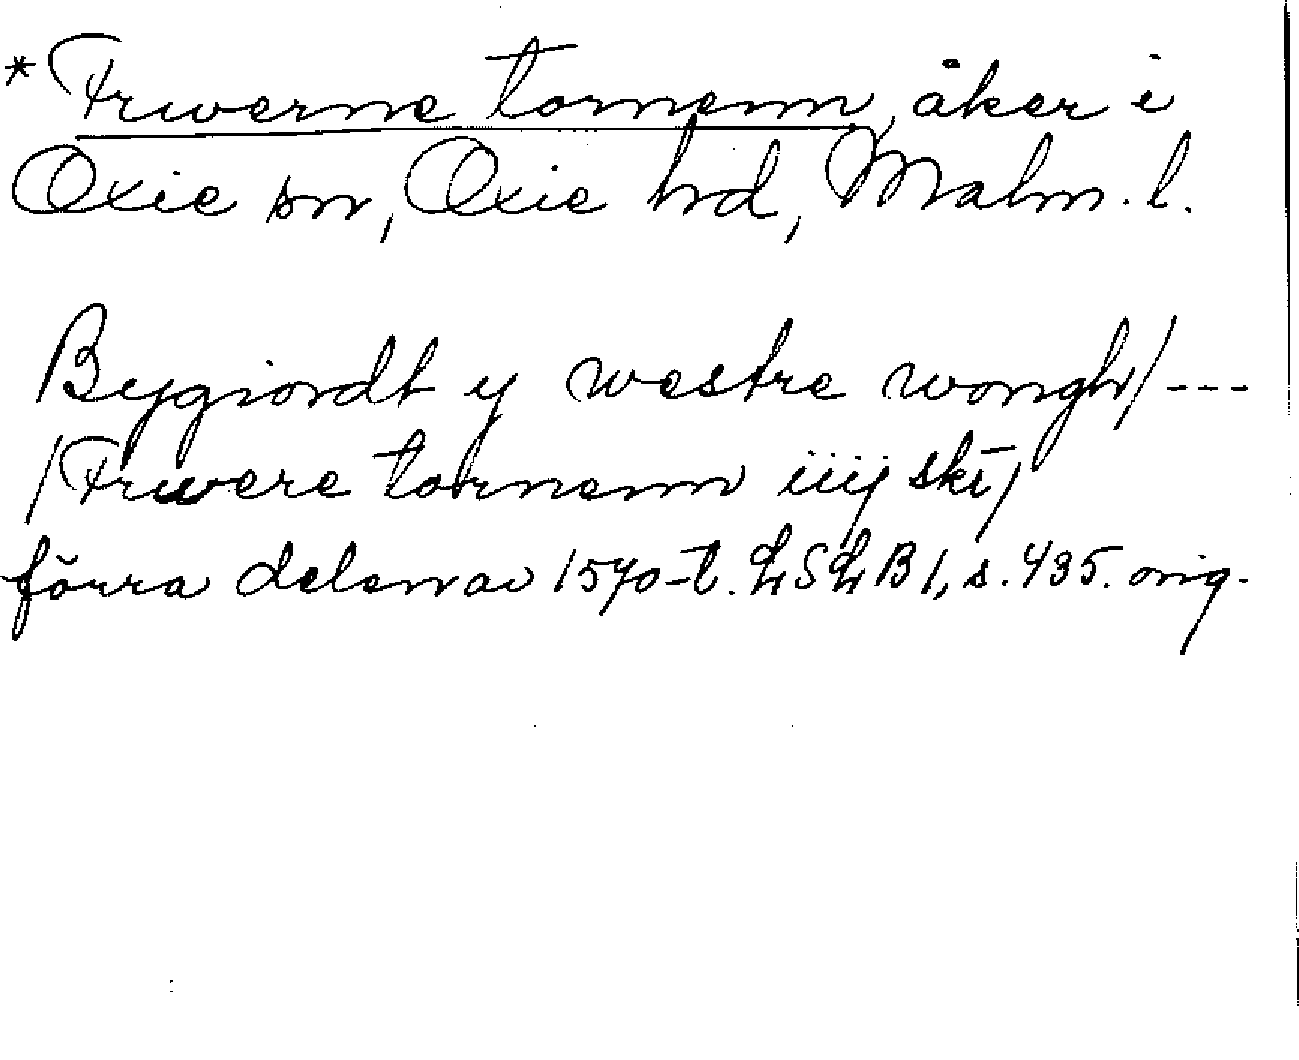 * Fruerne tornenn, åker i
Oxie sn, Oxie hd, Malm. l.
Bygiordt y westre wongh/---
/Fruere tornenn iiij sk̄i/
förra delen av 1570-t. LSLB 1, s. 435. orig.